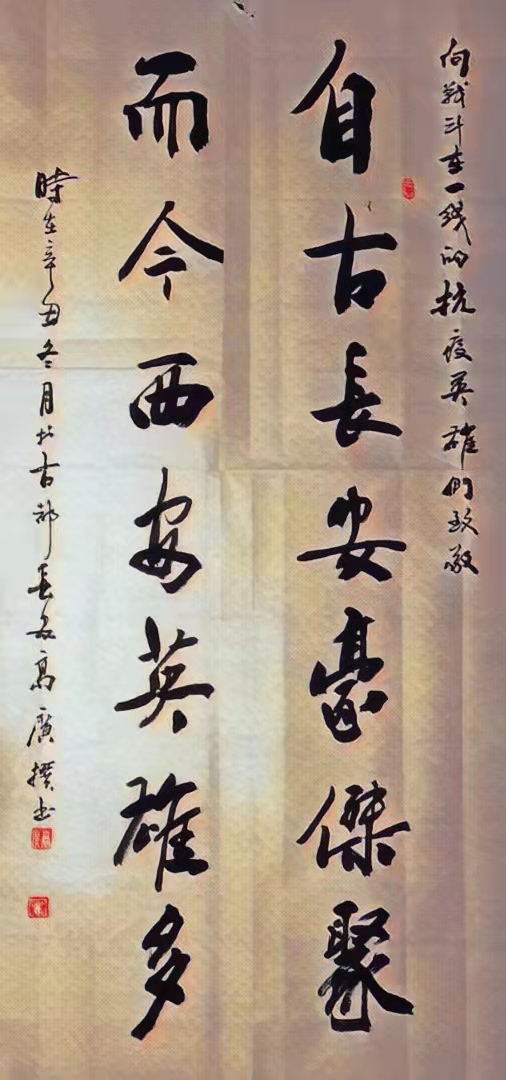 向戰斗在一线的抗疫英雄们致敬
自古長安豪傑聚
而今西安英雄多
時在辛丑冬月於古都長安高廣撰书